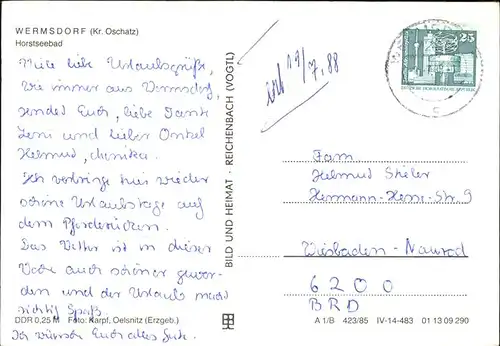 WERMSDORF (Kr. Oschatz)
Horstseebad
Viele liebe Urlaubsgrüße,
wie immer aus Wermsdorf,
sendet Euch, liebe Tante
Leni und lieber Onkel
Helmut, Monika.
Ich verbringe hier wieder
schöne Urlaubstage auf
dem Pferderücken.
Das Wetter ist in dieser
Woche auch schöner gewor-
den und der Urlaub macht
richtig Spaß.
DDR 0,25 M Foto: Karpf, Oelsnitz (Erzgeb.)
Ich wünsche Euch alles Gute.
BILD UND HEIMAT · REICHENBACH (VOGTL)
19/7.88
25
Fam
Helmut
Hermann-Hesse-Str. 9
Wiesbaden-Naurod
6200
BRD
A 1/B 423/85 IV-14-483 01 13 09 290